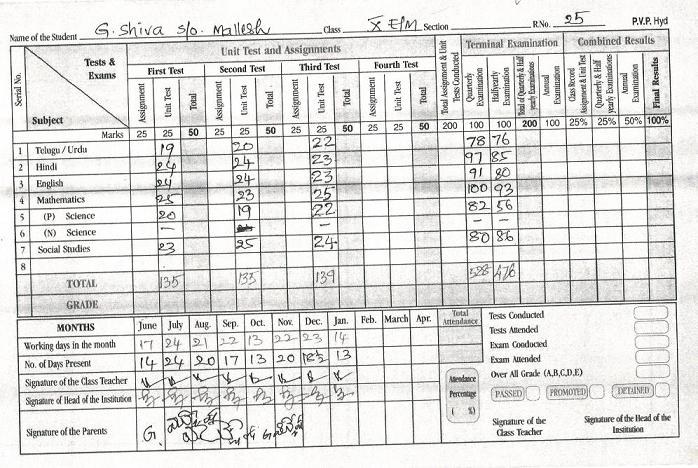 Name of the Student G. Shiva s/o. Mallesh Class X E/M Section R.No. 25 P.V.P. Hyd
Serial No. Tests & Exams Subject Unit Test and Assignments Total Assignment & Unit Tests Conducted Terminal Examination Combined Results
First Test Second Test Third Test Fourth Test
Assignment Unit Test Total Assignment Unit Test Total Assignment Unit Test Total Assignment Unit Test Total Quarterly Examination Halfyearly Examination Total of Quarterly & Half yearly Examinations Annual Examination Class Record Assignment & Unit Test Quarterly & Half Yearly Examinations Annual Examination Final Results
Marks 25 25 50 25 25 50 25 25 50 25 25 50 200 100 100 200 100 25% 25% 50% 100%
1 Telugu / Urdu 19 20 22 78 76
2 Hindi 24 24 23 97 85
3 English 24 24 23 91 80
4 Mathematics 25 23 25 100 93
5 (P) Science 20 19 22 82 56
6 (N) Science - - - -
7 Social Studies 23 25 24 80 86
8
TOTAL 135 135 139 528 476
GRADE
MONTHS June July Aug. Sep. Oct. Nov. Dec. Jan. Feb. March Apr. Total Attendance
Working days in the month 17 24 21 22 13 22 23 14
No. of Days Present 14 24 20 17 13 20 18½ 13
Signature of the Class Teacher
Signature of Head of the Institution
Signature of the Parents G.
Attendance Percentage ( %)
Tests Conducted
Tests Attended
Exam Condocted
Exam Attended
Over All Grade (A,B,C,D,E)
PASSED PROMOTED DETAINED
Signature of the Class Teacher
Signature of the Head of the Institution